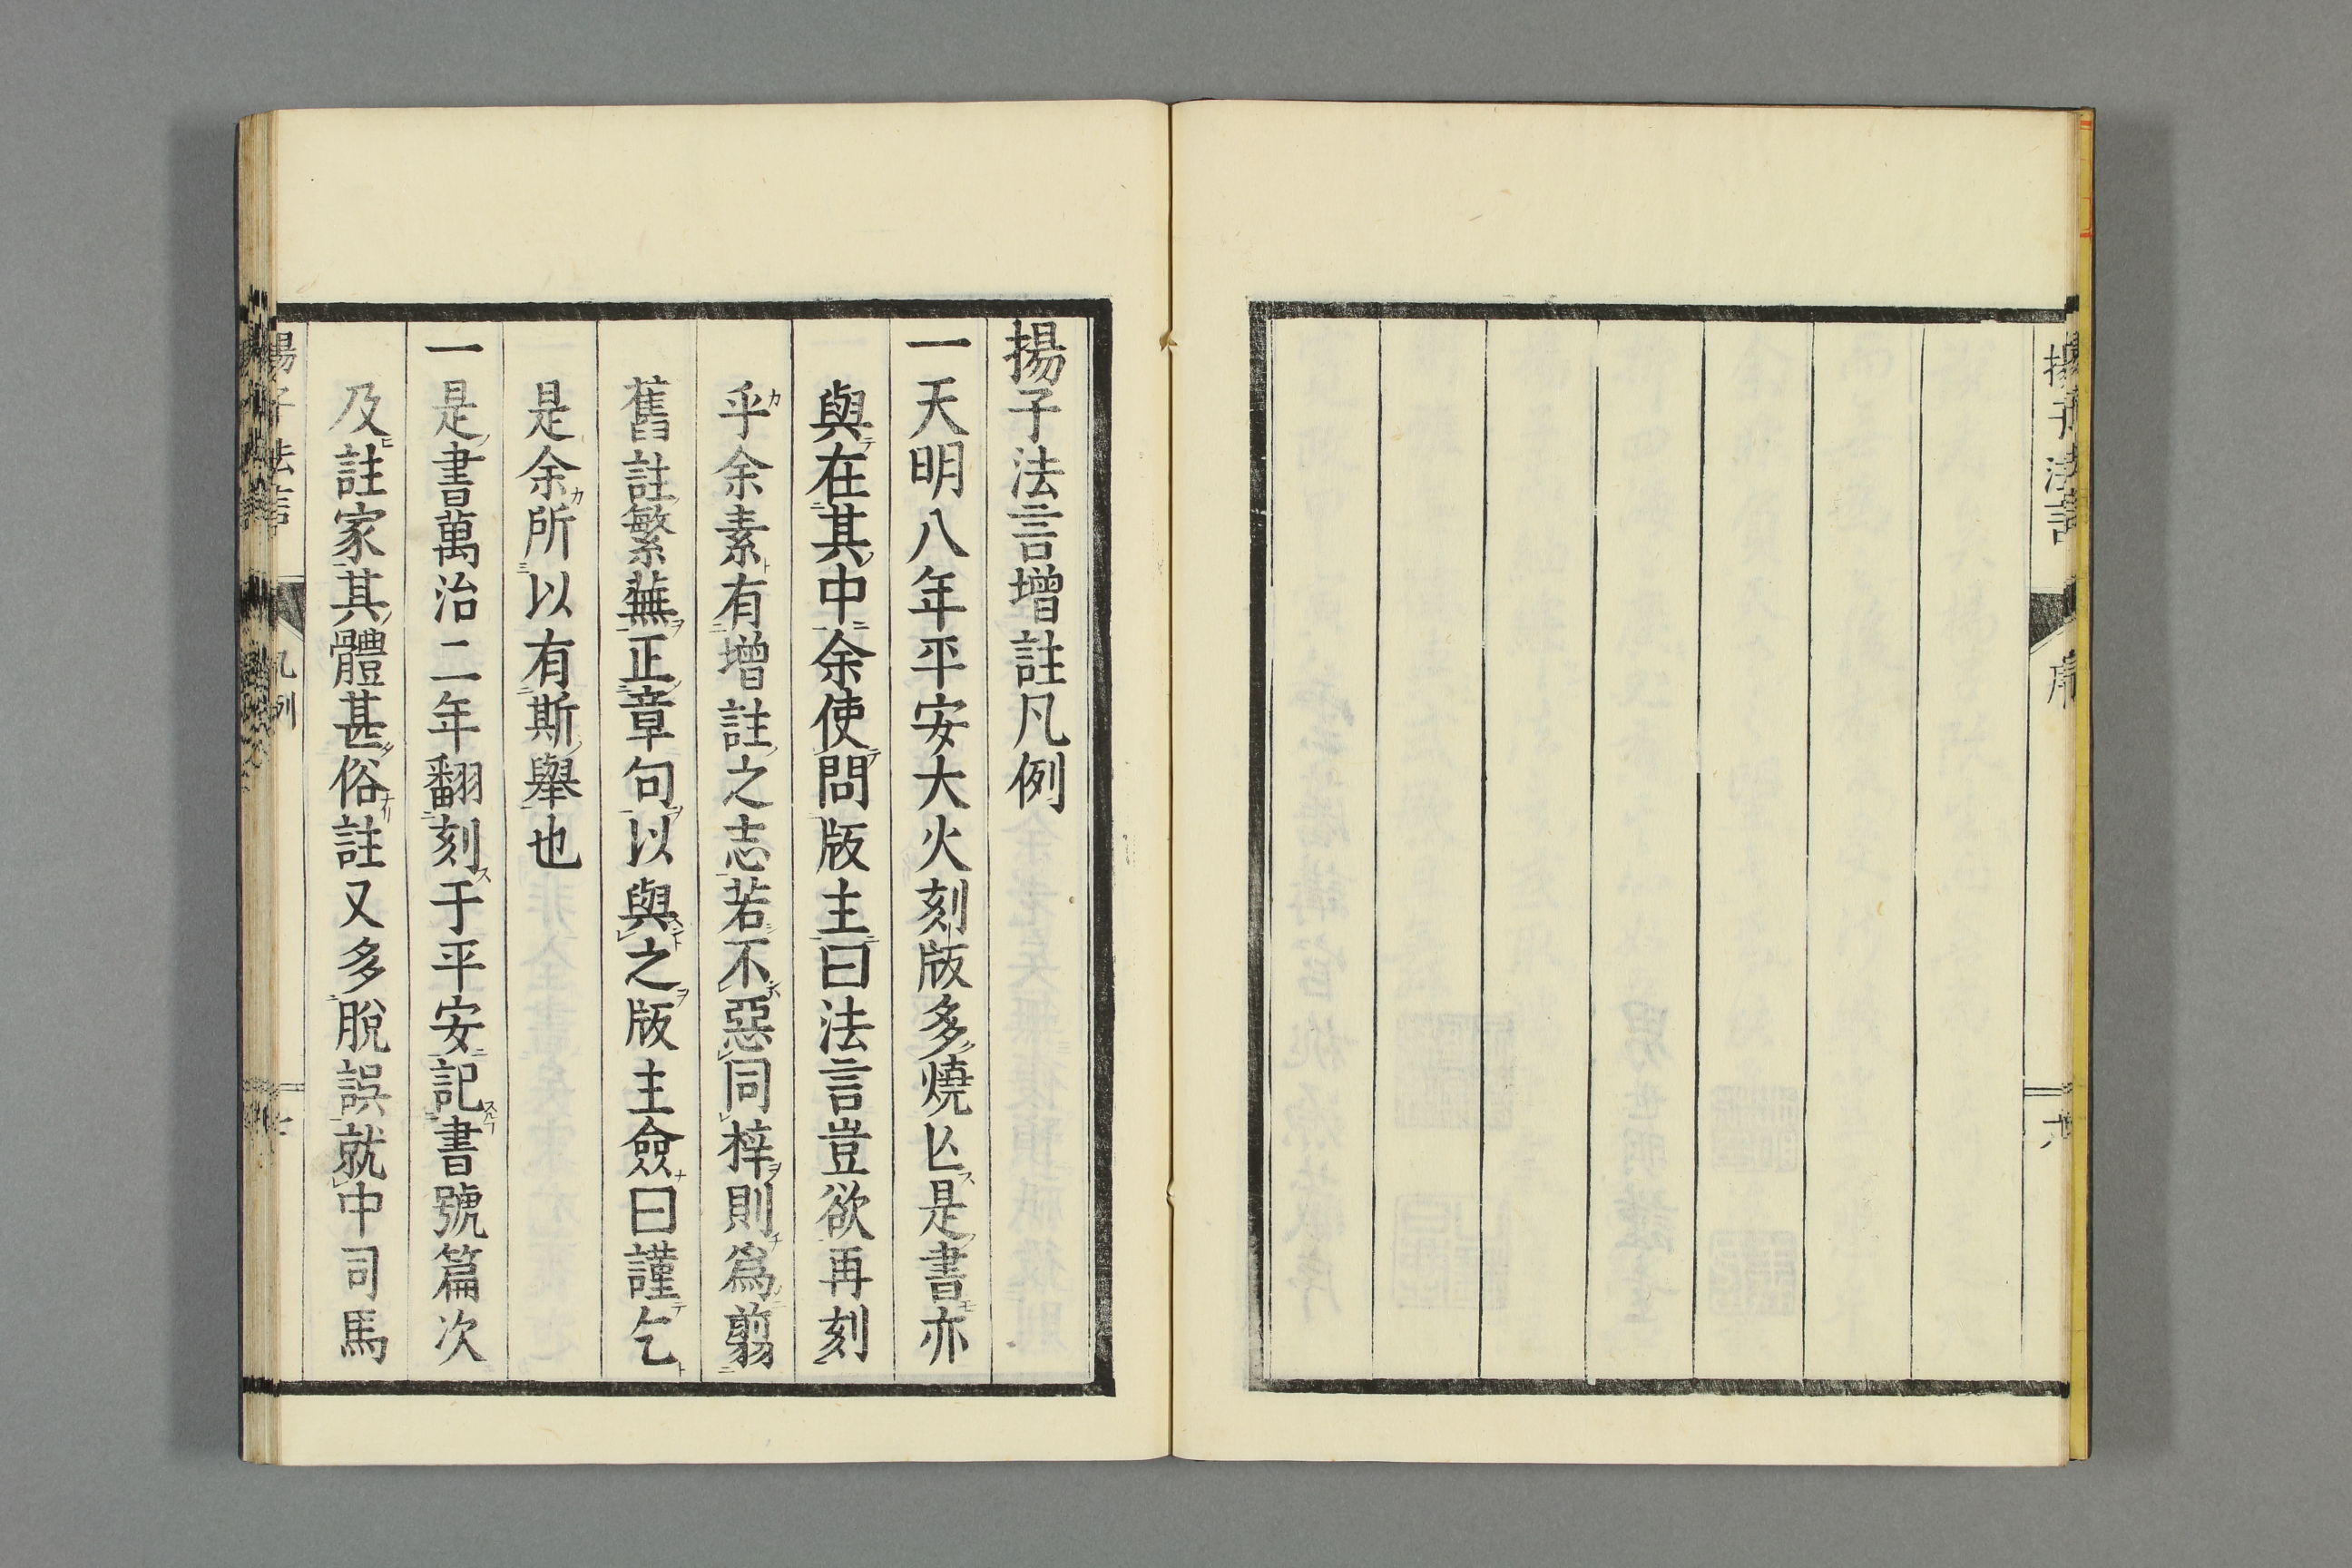 揚子法言
序
六
揚子法言增註凡例
一天明八年平安大火刻版多燒亾是書亦
與在其中余使問版主曰法言豈欲再刻
乎余素有增註之志若不惡同梓則爲翦
舊註繁蕪正章句以與之版主僉曰謹乞
是余所以有斯舉也
一是書萬治二年翻刻于平安記書號篇次
及註家其體甚俗註又多脫誤就中司馬
揚子法言
凡例